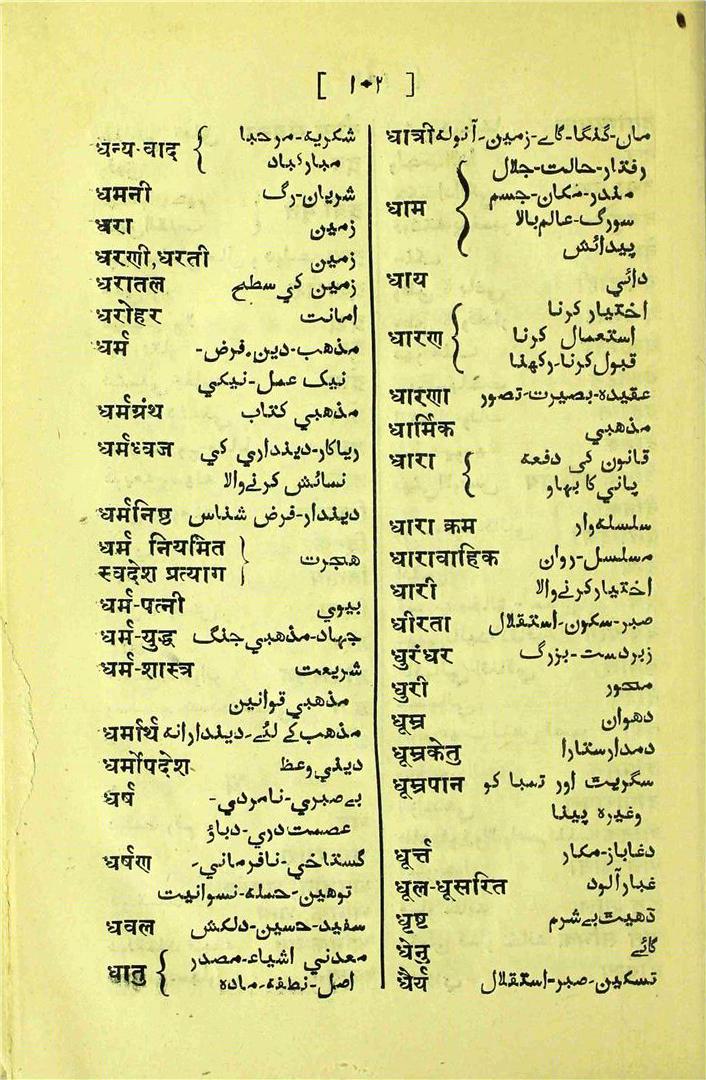 [ ۱۰۲ ]
धन्य-वाद { شکریہ-مرحبا
مبارکباد
धमनी شریان-رگ
धरा زمین
धरणी,धरती زمین
धरातल زمین کی سطح
धरोहर امانت
धर्म مذهب-دین-فرض-
نیک عمل-نیکی
धर्मग्रंथ مذهبی کتاب
धर्मध्वज ریاکار-دینداری کی
نمائش کرنے والا
धर्मनिष्ठ دیندار-فرض شناس
धर्म नियमित
स्वदेश प्रत्याग } هجرت
धर्म-पत्नी بیوی
धर्म-युद्ध جہاد-مذهبی جنگ
धर्म-शास्त्र شریعت
مذهبی قوانین
धर्मार्थ مذهب کے لئے-دیندارانہ
धर्मोपदेश دینی وعظ
धर्ष بے صبری-نامردی-
عصمت دری-دباؤ
धर्षण گستاخی-نافرمانی-
توهین-حملہ-نسوانیت
धवल سفید-حسین-دلکش
धातु { معدنی اشیاء-مصدر
اصل-نطفہ-مادہ
धात्री ماں-گنگا-گاے-زمین-آنولہ
धाम { رفتار-حالت-جلال
مندر-مکان-جسم
سورگ-عالم بالا
پیدائش
धाय دائی
धारण { اختیار کرنا
استعمال کرنا
قبول کرنا-رکھنا
धारणा عقیدہ-بصیرت-تصور
धार्मिक مذهبی
धारा { قانون کی دفعہ
پانی کا بہاو
धारा क्रम سلسلہ وار
धारावाहिक مسلسل-رواں
धारी اختیار کرنے والا
धीरता صبر-سکون-استقلال
धुरंधर زبردست-بزرگ
धुरी محور
धूम्र دھواں
धूम्रकेतु دمدار ستارا
धूम्रपान سگریٹ اور تمبا کو
وغیرہ پینا
धूर्त्त دغاباز-مکار
धूल-धूसरित غبار آلود
धृष्ट ڈھیٹ بے شرم
धेनु گائے
धैर्य تسکین-صبر-استقلال